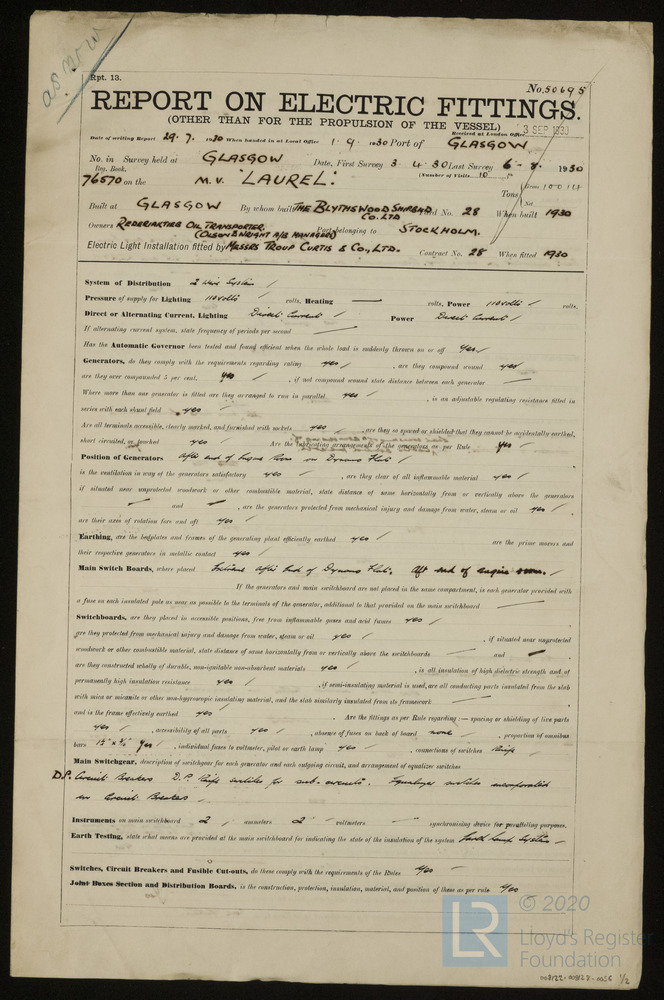 as now
Rpt. 13.
No. 50695
REPORT ON ELECTRIC FITTINGS.
(OTHER THAN FOR THE PROPULSION OF THE VESSEL)
Received at London Office 3 SEP 1930
Date of writing Report 29. 7. 1930 When handed in at Local Office 1. 9. 1930 Port of GLASGOW
No. in Survey held at GLASGOW Date, First Survey 3. 4. 30 Last Survey 6-8. 1930
Reg. Book. (Number of Visits 10
76570 on the M.V. "LAUREL". Tons Gross
Net
Built at GLASGOW By whom built THE BLYTHSWOOD SHIPBLDG CO. LTD Yard No. 28 When built 1930
Owners REDERIAKTIEB OIL TRANSPORTER. (OLSON & WRIGHT A/B MANAGERS) Port belonging to STOCKHOLM.
Electric Light Installation fitted by MESSRS TROUP CURTIS & CO., LTD. Contract No. 28 When fitted 1930
System of Distribution 2 Wire System
Pressure of supply for Lighting 110 volts volts, Heating — volts, Power 110 volts volts.
Direct or Alternating Current, Lighting Direct Current Power Direct Current
If alternating current system, state frequency of periods per second —
Has the Automatic Governor been tested and found efficient when the whole load is suddenly thrown on or off Yes
Generators, do they comply with the requirements regarding rating yes , are they compound wound yes
are they over compounded 5 per cent. yes , if not compound wound state distance between each generator —
Where more than one generator is fitted are they arranged to run in parallel yes , is an adjustable regulating resistance fitted in
series with each shunt field yes
Are all terminals accessible, clearly marked, and furnished with sockets yes , are they so spaced or shielded that they cannot be accidentally earthed,
short circuited, or touched yes Are the lubricating arrangements of the generators as per Rule yes
Position of Generators After end of Engine Room on Dynamo Flat
is the ventilation in way of the generators satisfactory yes , are they clear of all inflammable material yes
if situated near unprotected woodwork or other combustible material, state distance of same horizontally from or vertically above the generators
— and — , are the generators protected from mechanical injury and damage from water, steam or oil yes ,
are their axes of rotation fore and aft yes
Earthing, are the bedplates and frames of the generating plant efficiently earthed yes are the prime movers and
their respective generators in metallic contact yes
Main Switch Boards, where placed After end of Dynamo Flat. Aft end of engine room.
If the generators and main switchboard are not placed in the same compartment, is each generator provided with
a fuse on each insulated pole as near as possible to the terminals of the generator, additional to that provided on the main switchboard —
Switchboards, are they placed in accessible positions, free from inflammable gases and acid fumes yes
are they protected from mechanical injury and damage from water, steam or oil yes , if situated near unprotected
woodwork or other combustible material, state distance of same horizontally from or vertically above the switchboards — and —
are they constructed wholly of durable, non-ignitable non-absorbent materials yes , is all insulation of high dielectric strength and of
permanently high insulation resistance yes , if semi-insulating material is used, are all conducting parts insulated from the slab
with mica or micanite or other non-hygroscopic insulating material, and the slab similarly insulated from its framework —
and is the frame effectively earthed yes Are the fittings as per Rule regarding :— spacing or shielding of live parts
yes , accessibility of all parts yes , absence of fuses on back of board none , proportion of omnibus
bars yes , individual fuses to voltmeter, pilot or earth lamp yes , connections of switches Knife
Main Switchgear, description of switchgear for each generator and each outgoing circuit, and arrangement of equalizer switches
D.P. Circuit Breakers D.P. Knife switches for sub-circuits. Equalizer switches incorporated
on Circuit Breakers.
Instruments on main switchboard 2 ammeters 2 voltmeters — synchronising device for paralleling purposes.
Earth Testing, state what means are provided at the main switchboard for indicating the state of the insulation of the system Earth Lamp System
Switches, Circuit Breakers and Fusible Cut-outs, do these comply with the requirements of the Rules Yes
Joint Boxes Section and Distribution Boards, is the construction, protection, insulation, material, and position of these as per rule Yes
LR
© 2020
Lloyd's Register
Foundation
008122-008128-0056 1/2